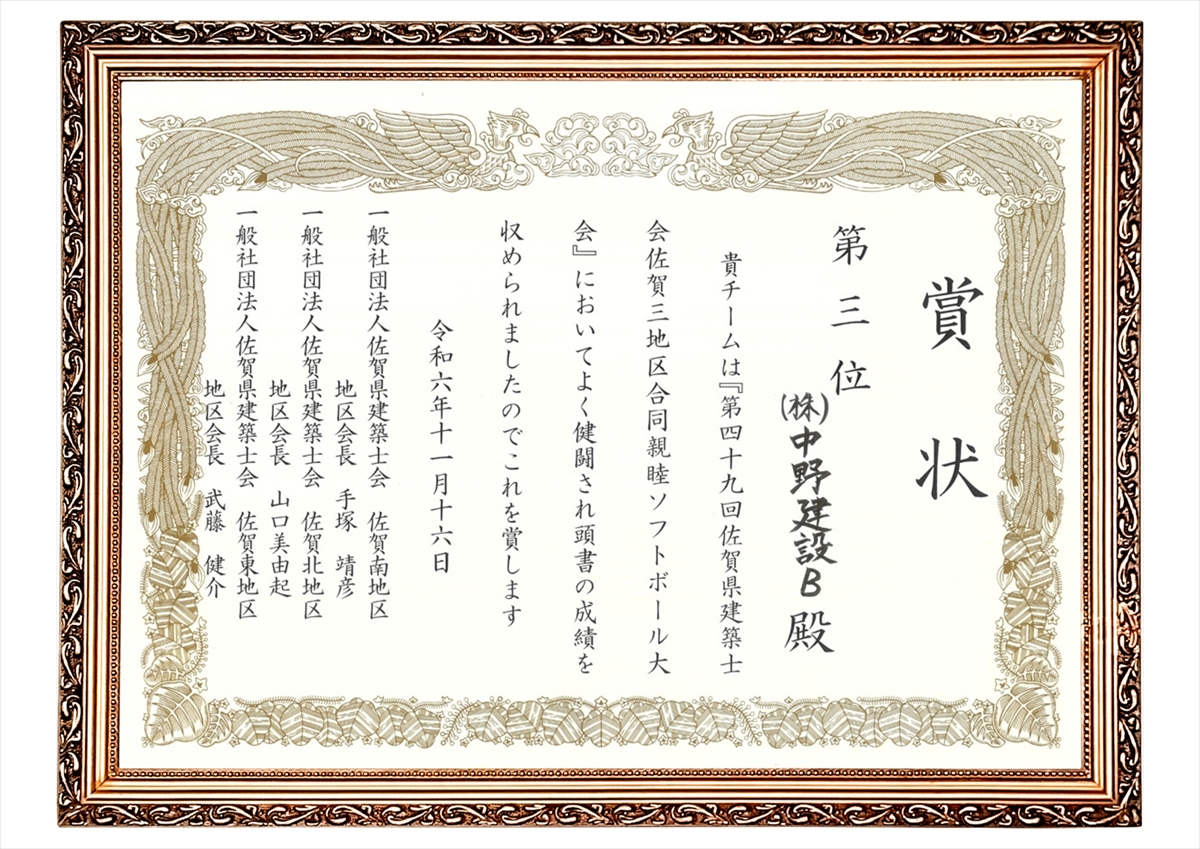 賞状
第三位
(株)中野建設B 殿
貴チームは『第四十九回佐賀県建築士
会佐賀三地区合同親睦ソフトボール大
会』においてよく健闘され頭書の成績を
収められましたのでこれを賞します
令和六年十一月十六日
一般社団法人佐賀県建築士会 佐賀南地区
地区会長 手塚 靖彦
一般社団法人佐賀県建築士会 佐賀北地区
地区会長 山口美由起
一般社団法人佐賀県建築士会 佐賀東地区
地区会長 武藤 健介